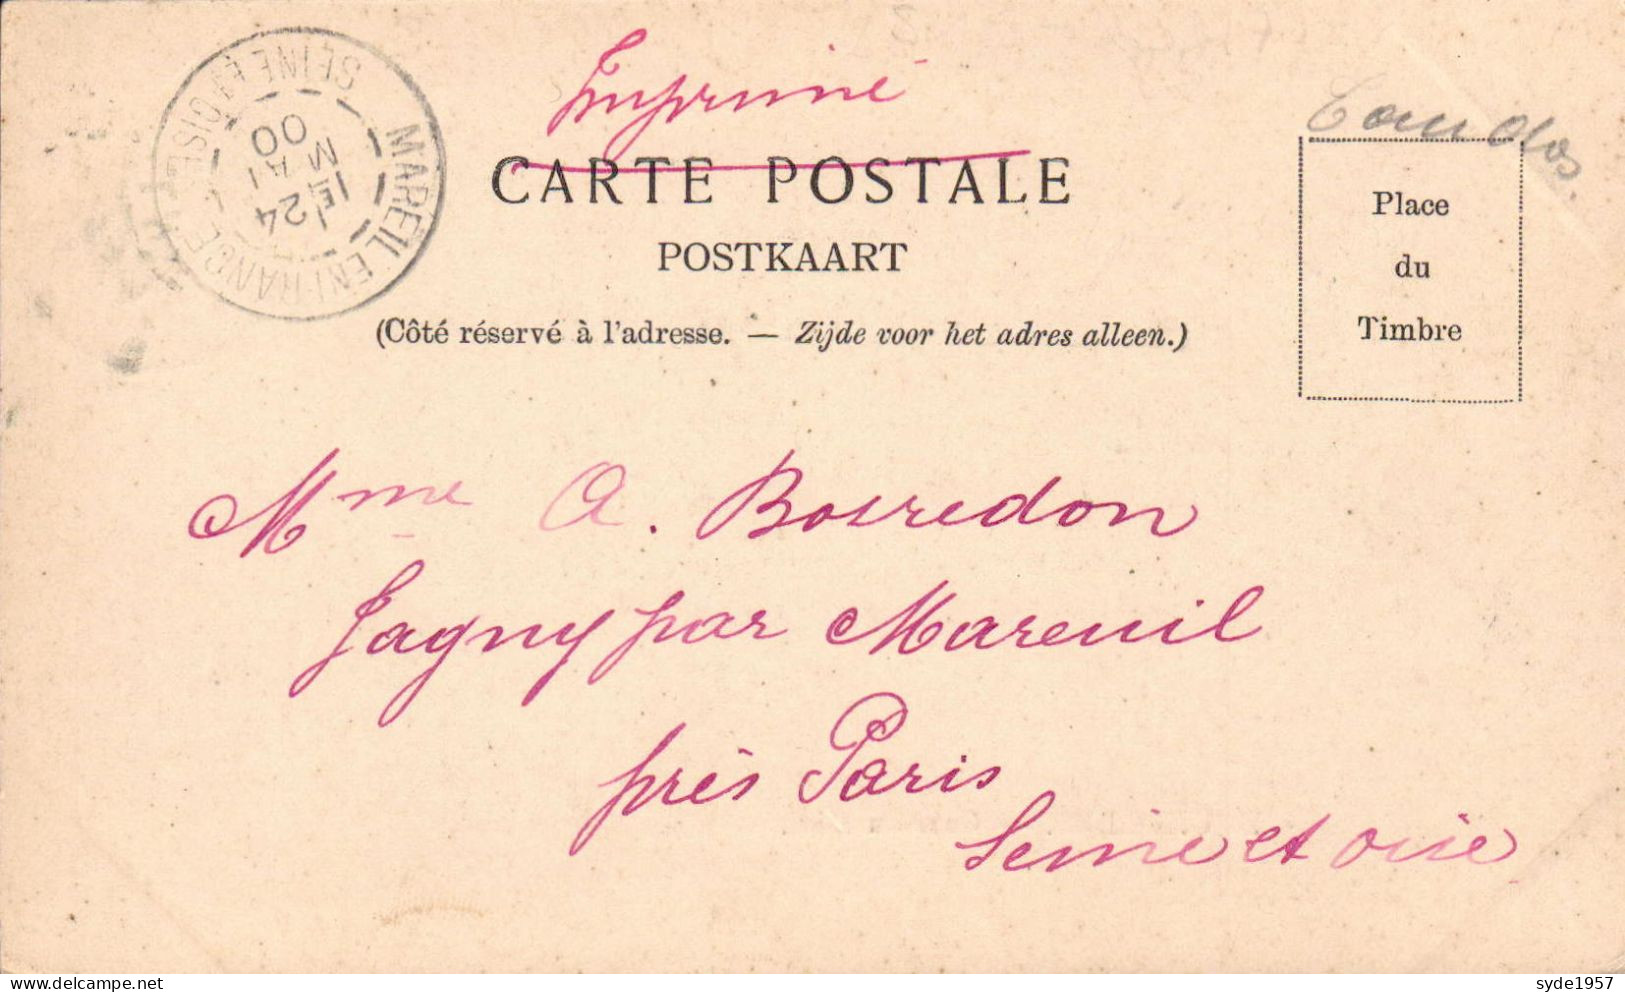 Imprimé
CARTE POSTALE
POSTKAART
(Côté réservé à l'adresse. — Zijde voor het adres alleen.)
Place
du
Timbre
MAREIL EN FRANCE
SEINE ET OISE
1E
24
MAI
00
Mme A. Bosredon
Jagny par Mareuil
près Paris
Seine et Oise
syde1957